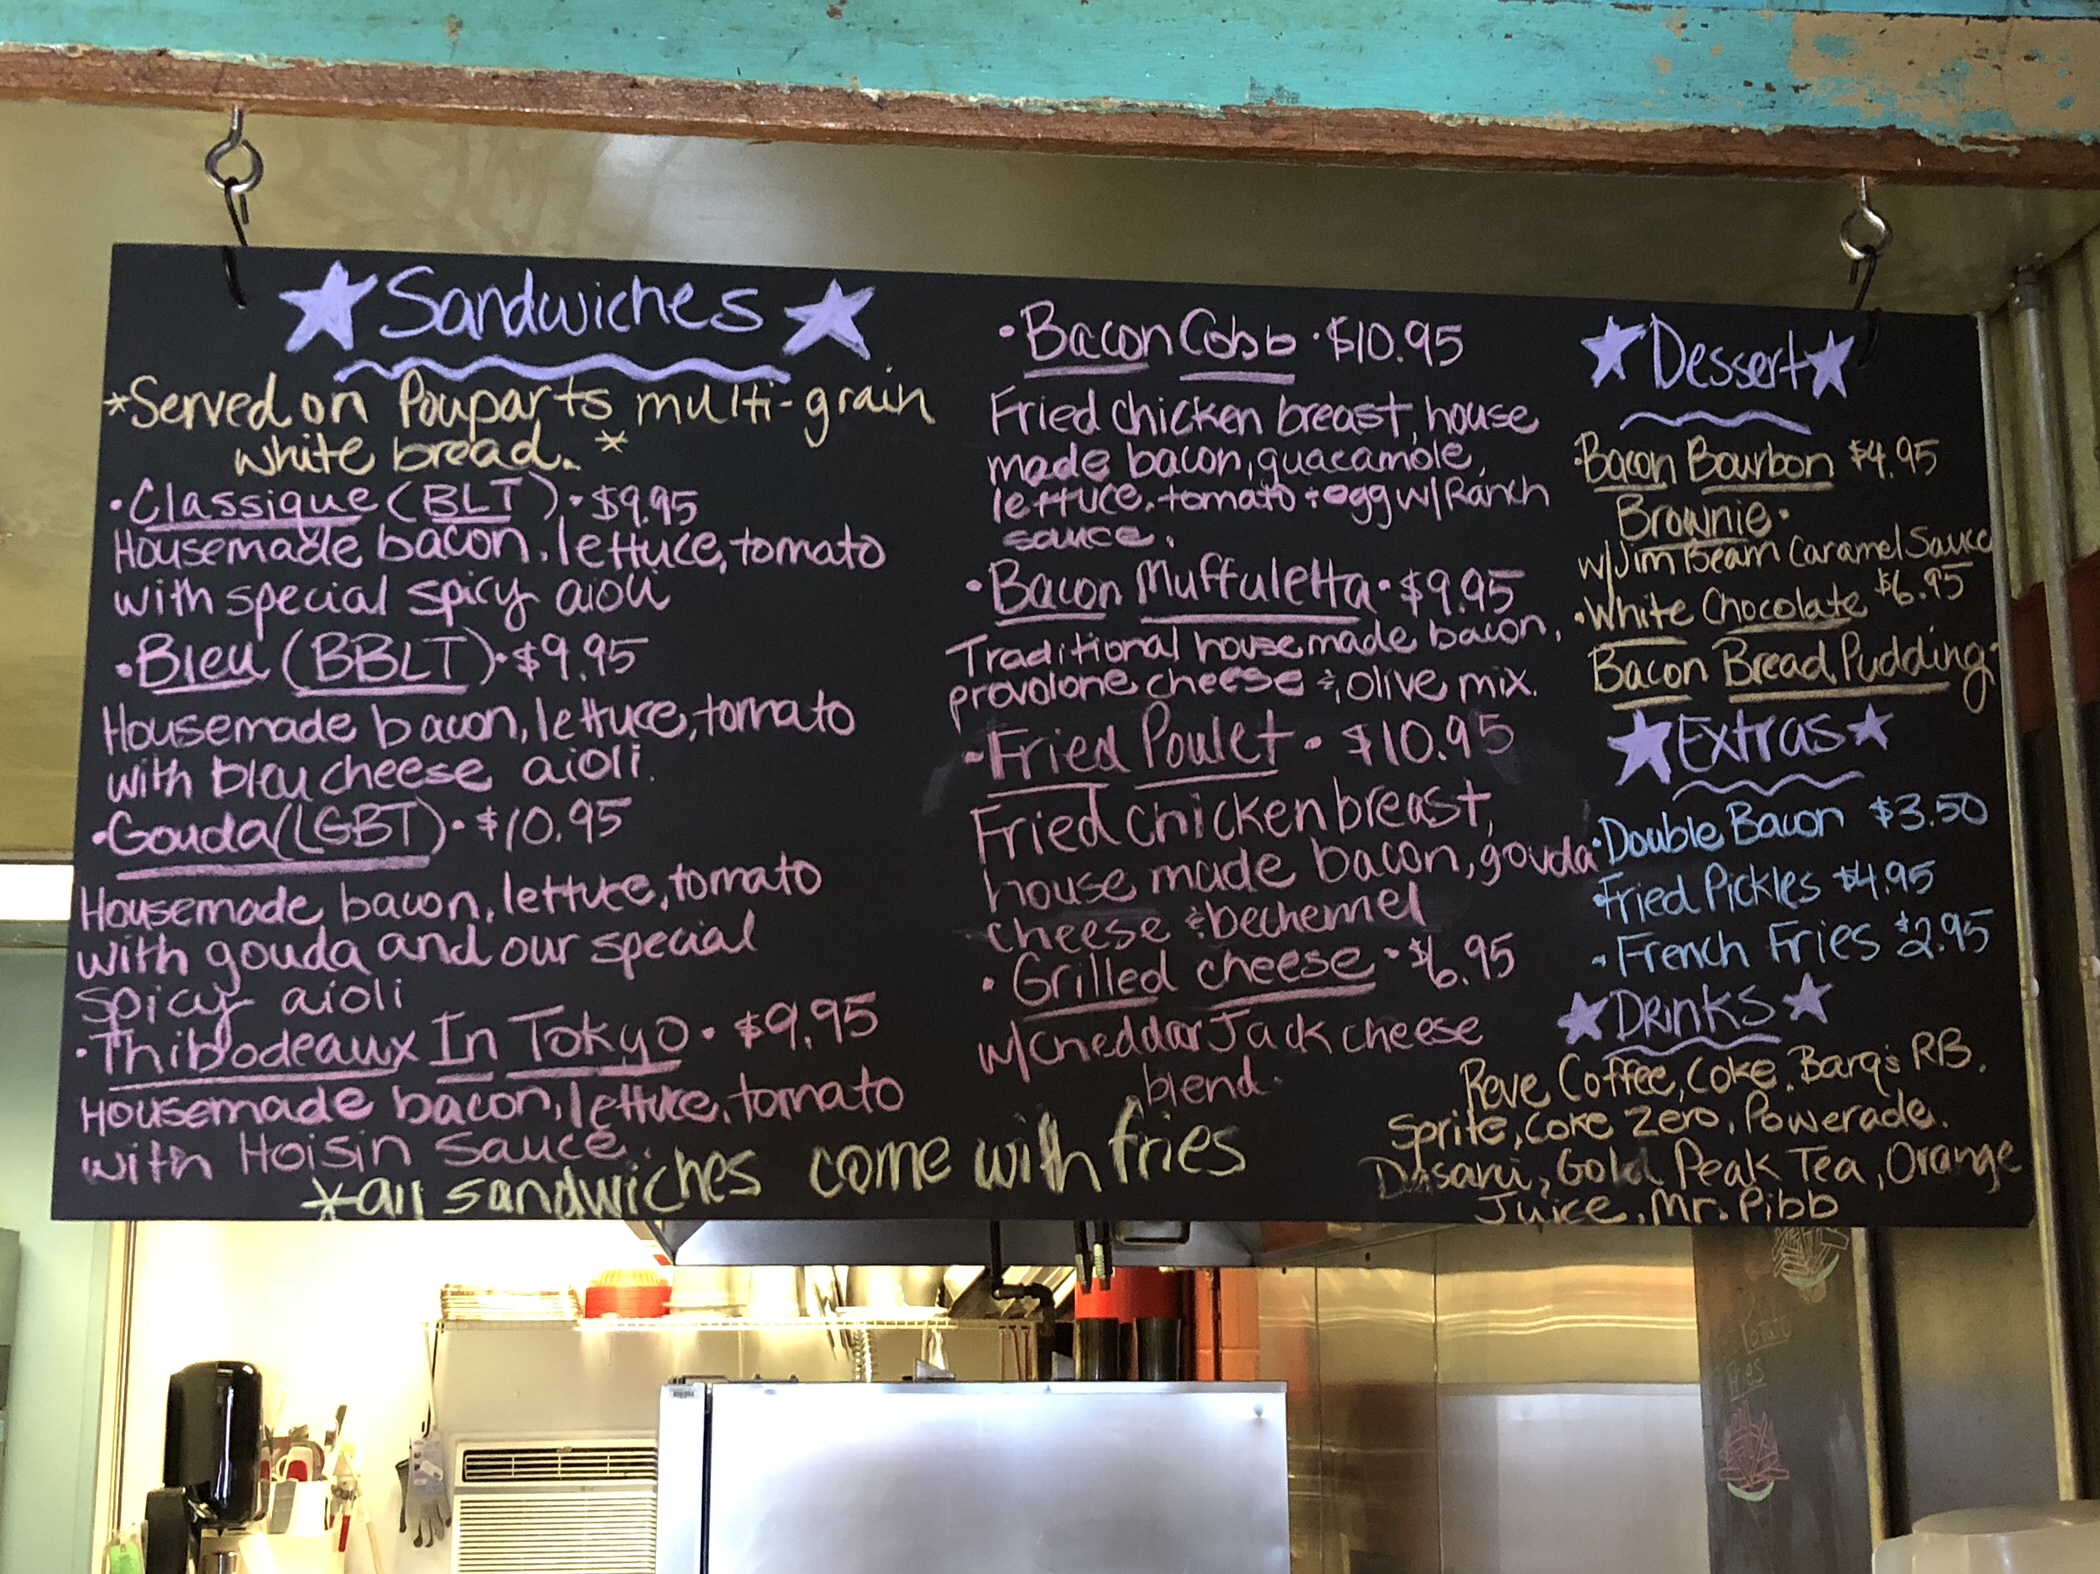 Sandwiches
*Served on Pouparts multi-grain
white bread. *
• Classique (BLT) • $9.95
Housemade bacon, lettuce, tomato
with special spicy aioli
• Bleu (BBLT) • $9.95
Housemade bacon, lettuce, tomato
with bleu cheese aioli.
• Gouda (LGBT) • $10.95
Housemade bacon, lettuce, tomato
with gouda and our special
spicy aioli
• Thibodeaux In Tokyo • $9.95
Housemade bacon, lettuce, tomato
with Hoisin sauce.
• Bacon Cobb • $10.95
Fried chicken breast, house
made bacon, guacamole,
lettuce, tomato + egg w/ Ranch
sauce.
• Bacon Muffuletta • $9.95
Traditional housemade bacon,
provolone cheese & olive mix.
• Fried Poulet • $10.95
Fried chicken breast,
house made bacon, gouda
cheese & bechemel
• Grilled cheese • $6.95
w/Cheddar Jack cheese
blend.
*all sandwiches come with fries
Dessert
• Bacon Bourbon $4.95
Brownie •
w/Jim Beam Caramel Sauce
• White Chocolate $6.95
Bacon Bread Pudding •
Extras
• Double Bacon $3.50
• Fried Pickles $4.95
• French Fries $2.95
Drinks
Reve Coffee, Coke, Barq's RB,
Sprite, Coke Zero, Powerade.
Dasani, Gold Peak Tea, Orange
Juice, Mr. Pibb
Potato
Fries